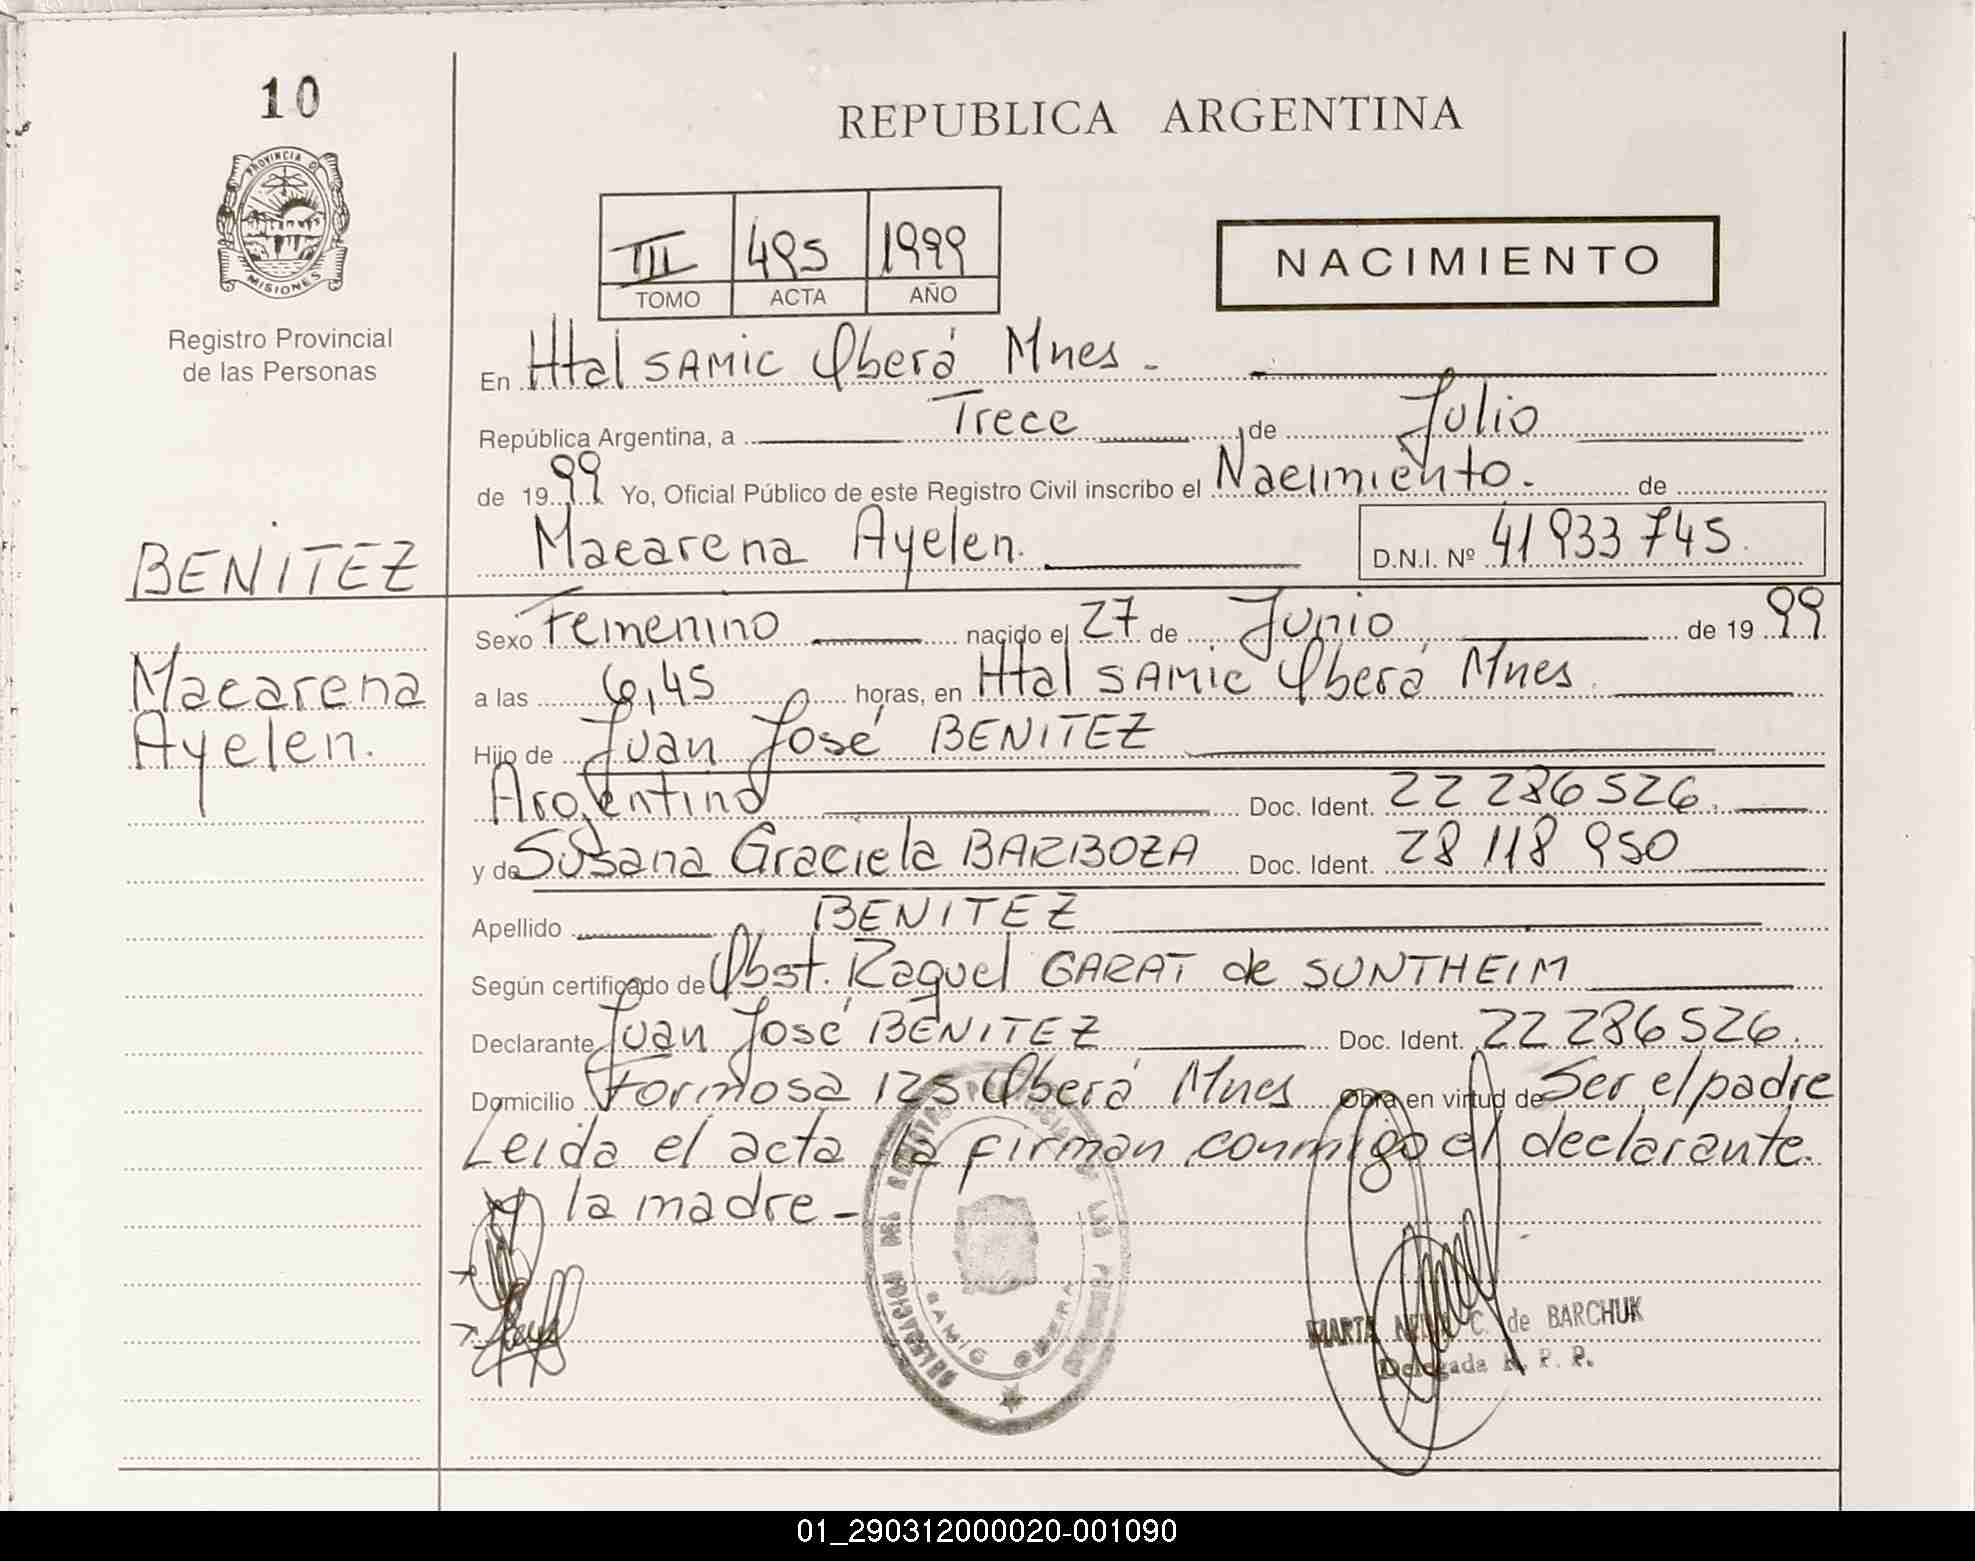 10
PROVINCIA D
MISIONES
Registro Provincial
de las Personas
BENITEZ
Macarena
Ayelen.
REPUBLICA ARGENTINA
III 495 1999
TOMO ACTA AÑO
NACIMIENTO
En Htal SAMIC Oberá Mnes.
República Argentina, a Trece de Julio
de 1999 Yo, Oficial Público de este Registro Civil inscribo el Nacimiento. de
Macarena Ayelen. D.N.I. Nº 41933745.
Sexo Femenino nacido el 27 de Junio de 1999
a las 6,45 horas, en Htal SAMIC Oberá Mnes.
Hijo de Juan José BENITEZ
Argentino Doc. Ident. 22 286 526.
y de Susana Graciela BARBOZA Doc. Ident. 28 118 950
Apellido BENITEZ
Según certificado de Obst. Raquel GARAT de SUNTHEIM
Declarante Juan José BENITEZ Doc. Ident. 22 286 526.
Domicilio Formosa 125 Oberá Mnes Obra en virtud de Ser el padre
Leida el acta la firman conmigo el declarante.
y la madre -
SAMIC OBERA
MARTA C. de BARCHUK
Delegada R. P. P.
01_290312000020-001090